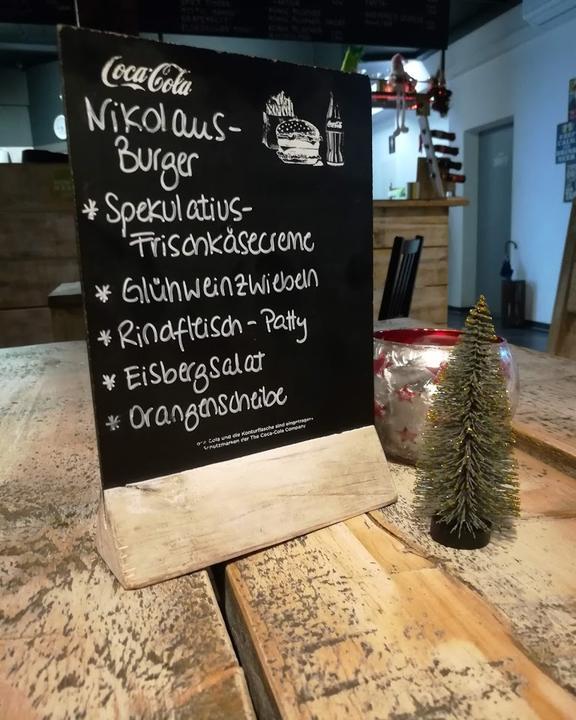 Coca-Cola
Nikolaus-
Burger
* Spekulatius-
Frischkäsecreme
* Glühweinzwiebeln
* Rindfleisch-Patty
* Eisbergsalat
* Orangenscheibe
Cola und die Konturflasche sind eingetragene
Schutzmarken der The Coca-Cola Company